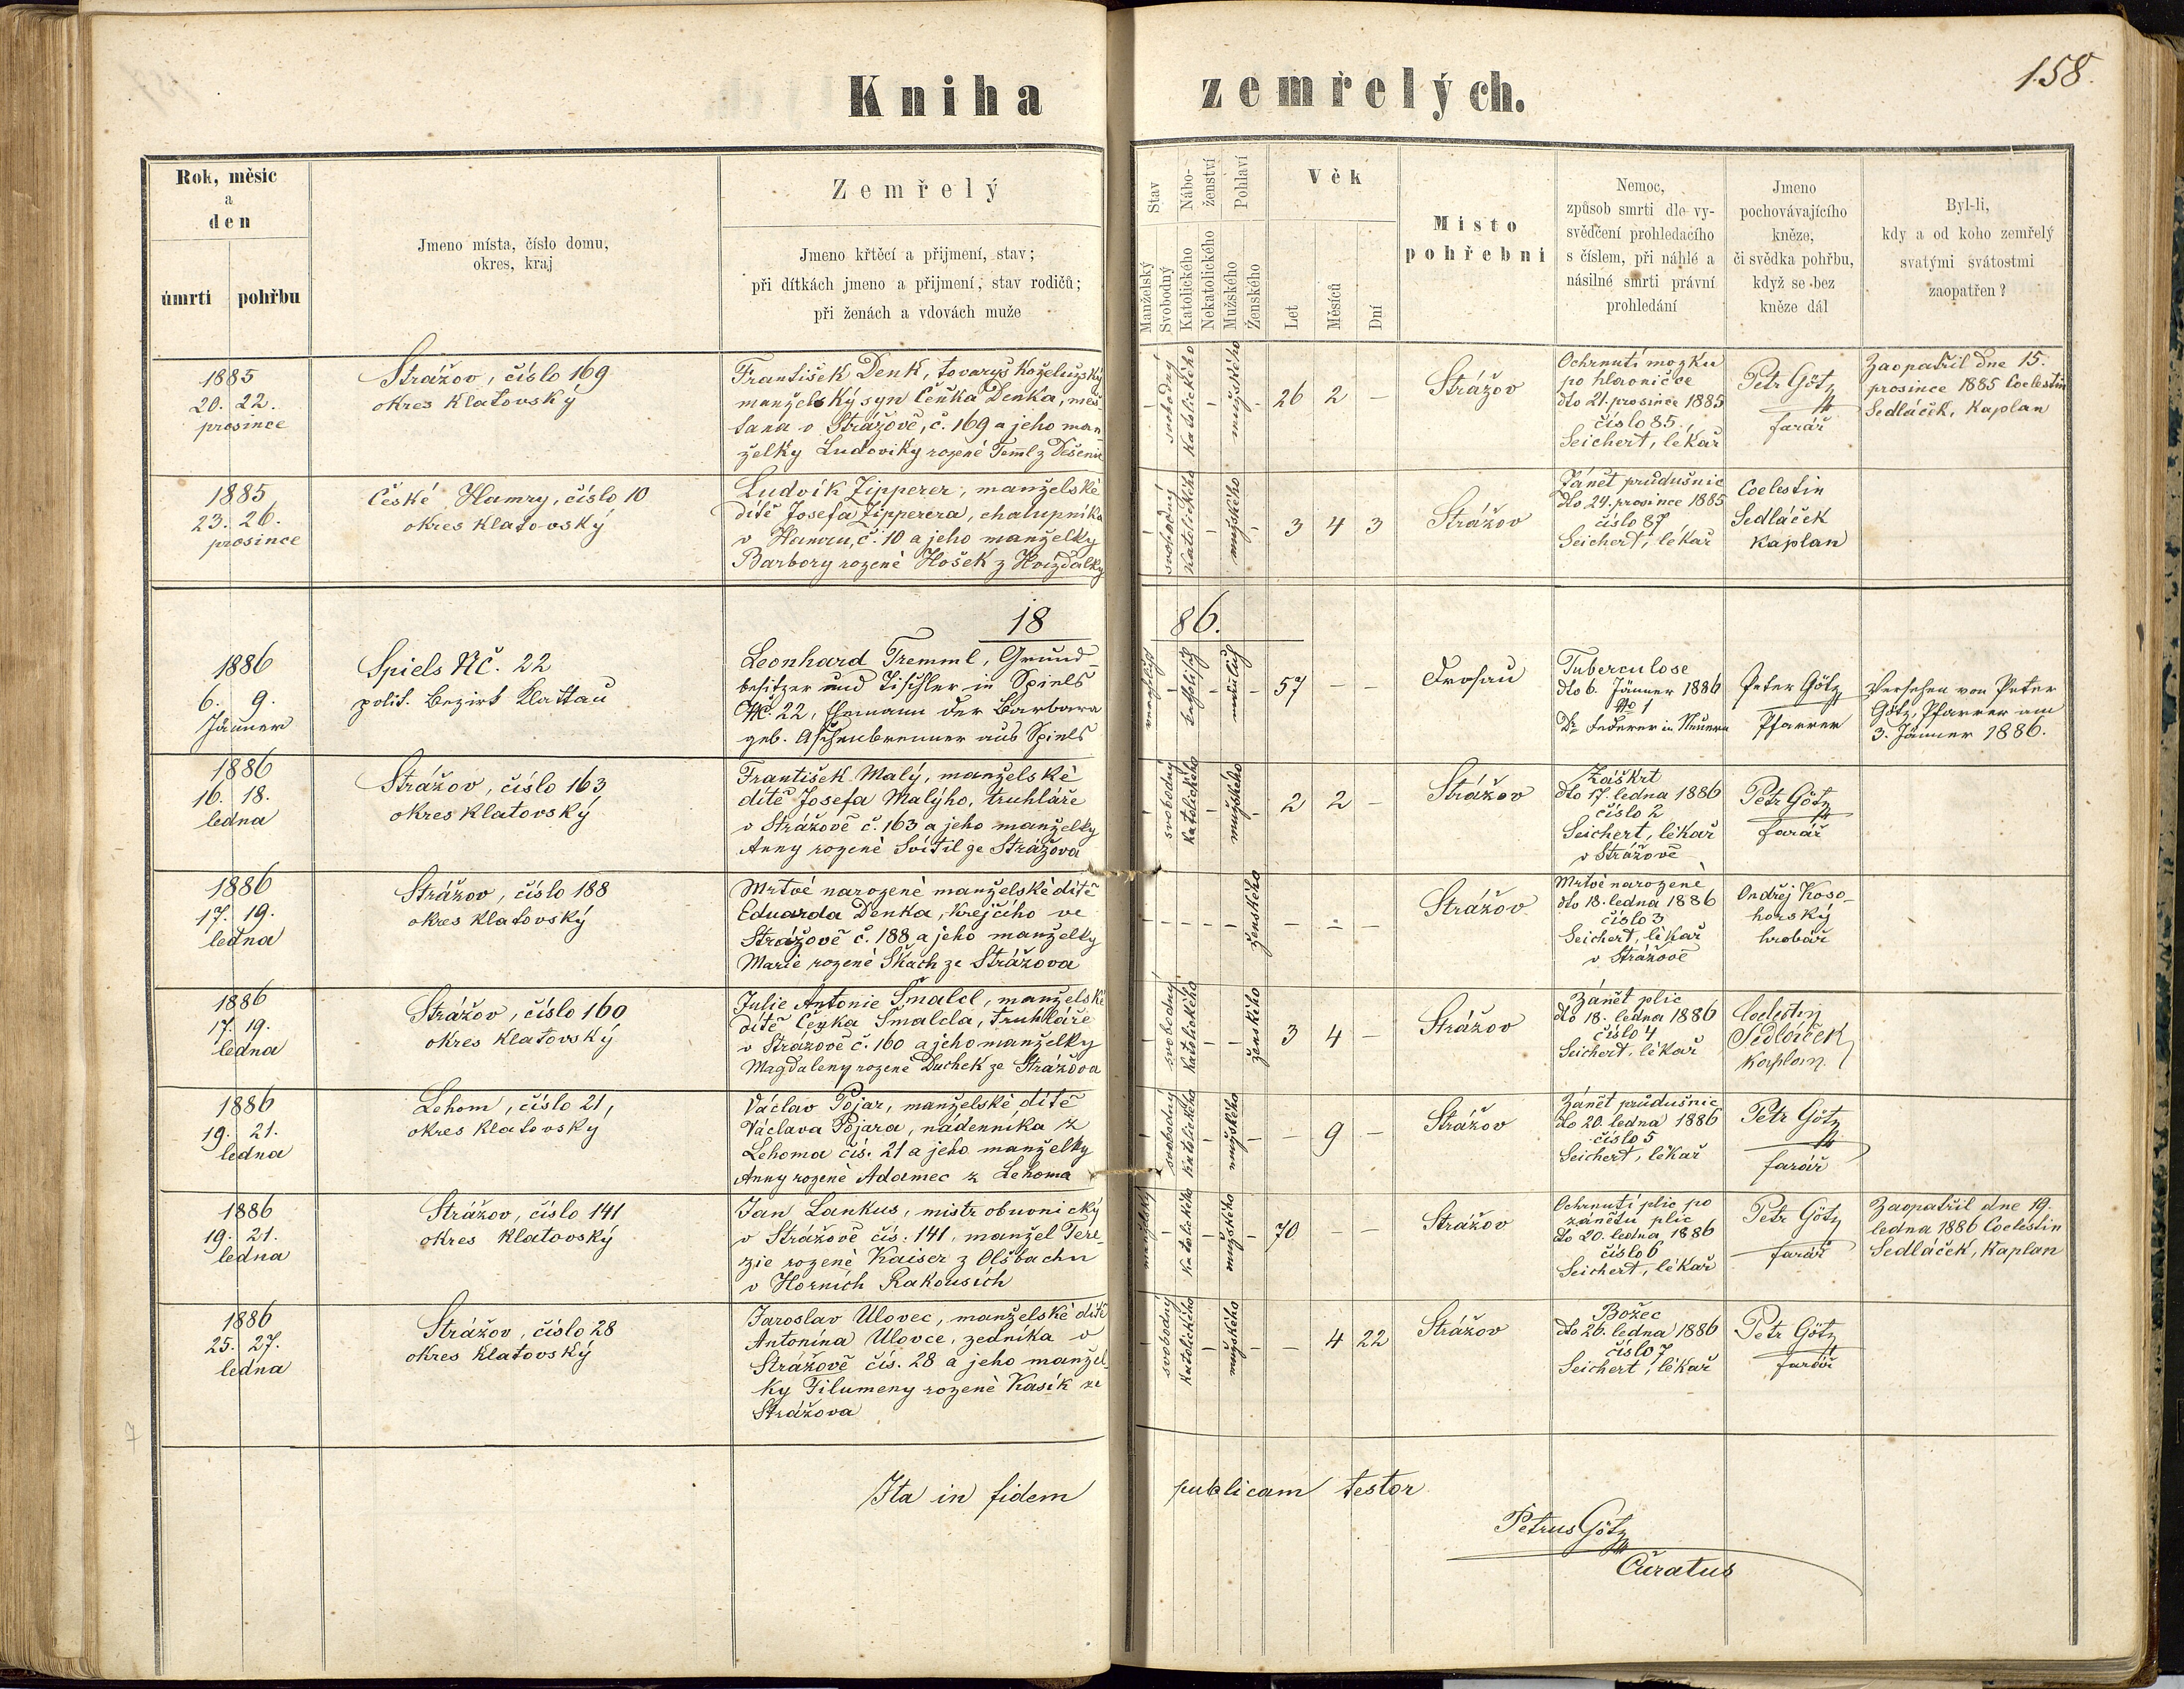 158.
Kniha zemřelých.
Rok, měsíc
a
den
úmrtí pohřbu
Jmeno místa, číslo domu,
okres, kraj
Zemřelý
Jmeno křtěcí a přijmení, stav;
při dítkách jmeno a přijmení, stav rodičů;
při ženách a vdovách muže
Stav
Manželský
Svobodný
Nábo-
ženství
Katolického
Nekatolického
Pohlaví
Mužského
Ženského
Věk
Let
Měsíců
Dní
Místo
pohřební
Nemoc,
způsob smrti dle vy-
svědčení prohledacího
s číslem, při náhlé a
násilné smrti právní
prohledání
Jmeno
pochovávajícího
kněze,
či svědka pohřbu,
když se bez
kněze dál
Byl-li,
kdy a od koho zemřelý
svatými svátostmi
zaopatřen?
1885
20. 22.
prosince
Strážov, číslo 169
okres Klatovský
František Denk, tovaryš koželužský
manželský syn Čeňka Denka, měš-
ťana v Strážově, č. 169 a jeho man-
želky Ludoviky rozené Teml z Dešenic
- svobodný katolického - mužského -
26 2 -
Strážov
Ochrnutí mozku
po hlavničce
dto 21. prosince 1885
číslo 85.
Seichert, lékař
Petr Götz
farář
Zaopatřil dne 15.
prosince 1885 Coelestin
Sedláček, kaplan
1885
23. 26.
prosince
České Hamry, číslo 10
okres Klatovský
Ludvík Zipperer, manželské
dítě Josefa Zipperera, chalupníka
v Hamru, č. 10 a jeho manželky
Barbory rozené Hošek z Hvízdalky
- svobodný katolického - mužského -
3 4 3
Strážov
Zánět průdušnic
dto 24. prosince 1885
číslo 87
Seichert, lékař
Coelestin
Sedláček
kaplan
1886.
1886
6. 9.
Jänner
Spiels Nč. 22
polit. Bezirk Klattau
Leonhard Tremml, Grund-
besitzer und Tischler in Spiels
Nč. 22, Ehemann der Barbara
geb. Aschenbrenner aus Spiels
verehelicht - katholisch - männlich -
57 - -
Drosau
Tuberculose
dto 6. Jänner 1886
No 1
Dr Federer in Neuern
Peter Götz
Pfarrer
Versehen von Peter
Götz, Pfarrer am
3. Jänner 1886.
1886
16. 18.
ledna
Strážov, číslo 163
okres Klatovský
František Malý, manželské
dítě Josefa Malýho, truhláře
v Strážově č. 163 a jeho manželky
Anny rozené Svítil ze Strážova
- svobodný katolického - mužského -
2 2 -
Strážov
Záškrt
dto 17. ledna 1886
číslo 2
Seichert, lékař
v Strážově
Petr Götz
farář
1886
17. 19.
ledna
Strážov, číslo 188
okres Klatovský
Mrtvě narozené manželské dítě
Eduarda Denka, krejčího ve
Strážově č. 188 a jeho manželky
Marie rozené Skach ze Strážova
- - - - - ženského
- - -
Strážov
Mrtvě narozené
dto 18. ledna 1886
číslo 3
Seichert, lékař
v Strážově
Ondřej Koso-
horský
hrobař
1886
17. 19.
ledna
Strážov, číslo 160
okres Klatovský
Julie Antonie Šmalcl, manželské
dítě Čeňka Šmalcla, truhláře
v Strážově č. 160 a jeho manželky
Magdaleny rozené Duchek ze Strážova
- svobodný katolického - - ženského
3 4 -
Strážov
Zánět plic
dto 18. ledna 1886
číslo 4
Seichert, lékař
Coelestin
Sedláček
kaplan.
1886
19. 21.
ledna
Lehom, číslo 21,
okres Klatovský
Václav Pojar, manželské dítě
Václava Pojara, nádenníka z
Lehoma čís. 21 a jeho manželky
Anny rozené Adamec z Lehoma
- svobodný katolického - mužského -
- 9 -
Strážov
Zánět průdušnic
dto 20. ledna 1886
číslo 5
Seichert, lékař
Petr Götz
farář
1886
19. 21.
ledna
Strážov, číslo 141
okres Klatovský
Jan Lankus, mistr obuvnický
v Strážově čís. 141, manžel Tere-
zie rozené Kaiser z Olsbachu
v Horních Rakousích
manželský - katolického - mužského -
70 - -
Strážov
Ochrnutí plic po
zánětu plic
dto 20. ledna 1886
číslo 6
Seichert, lékař
Petr Götz
farář
Zaopatřil dne 19.
ledna 1886 Coelestin
Sedláček, kaplan
1886
25. 27.
ledna
Strážov, číslo 28
okres Klatovský
Jaroslav Ulovec, manželské dítě
Antonína Ulovce, zedníka v
Strážově čís. 28 a jeho manžel-
ky Filumeny rozené Kasík ze
Strážova
- svobodný katolického - mužského -
- 4 22
Strážov
Božec
dto 26. ledna 1886
číslo 7
Seichert, lékař
Petr Götz
farář
Ita in fidem publicam testor
Petrus Götz
Curatus
7